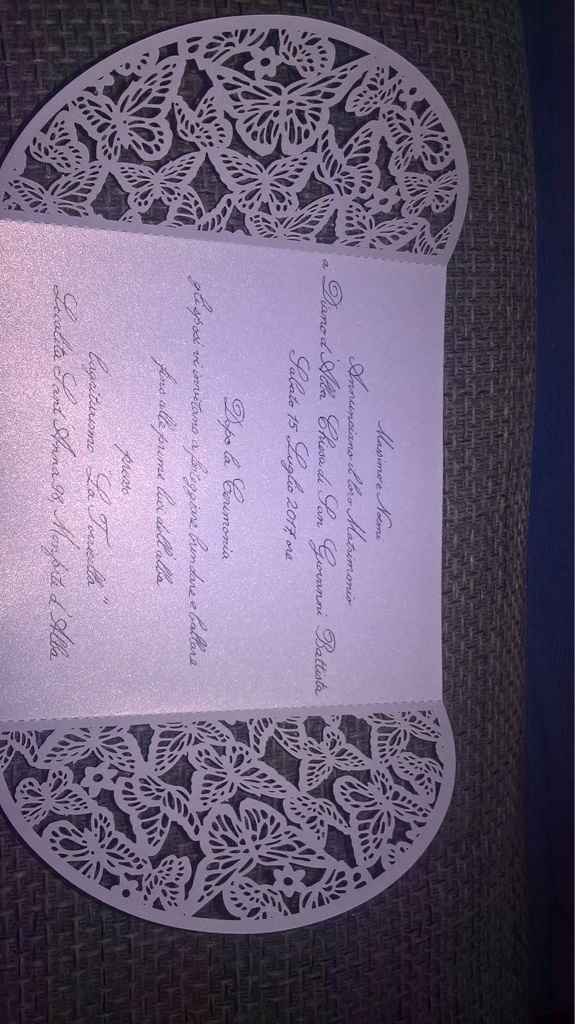 Massimo e Noemi
Annunciano il loro Matrimonio
a Diano d'Alba, Chiesa di San Giovanni Battista
Sabato 15 Luglio 2017, ore
Dopo la Cerimonia
gli sposi vi invitano a festeggiare, brindare e ballare
fino alle prime luci dell'alba
presso
Agriturismo "La Torricella"
Località Sant'Anna 98, Monforte d'Alba